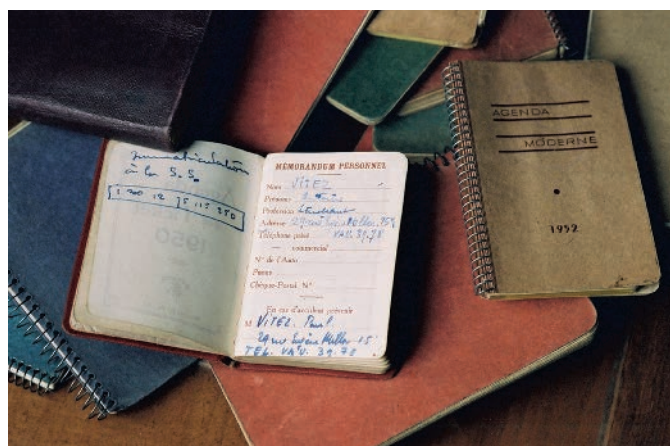 immatriculation
à la S.S.
5 115 250
1950
MÉMORANDUM PERSONNEL
Nom VITEZ
Prénoms
Profession Etudiant
Adresse 29 rue 15e
Téléphone privé VAU. 39.78
— commercial
N° de l'Auto
Pneus
Chèque-Postal N°
En cas d'accident prévenir
M VITEZ. Paul
29 rue Eugène Millon 15e
TEL. VAU. 39.78
AGENDA
MODERNE
1952